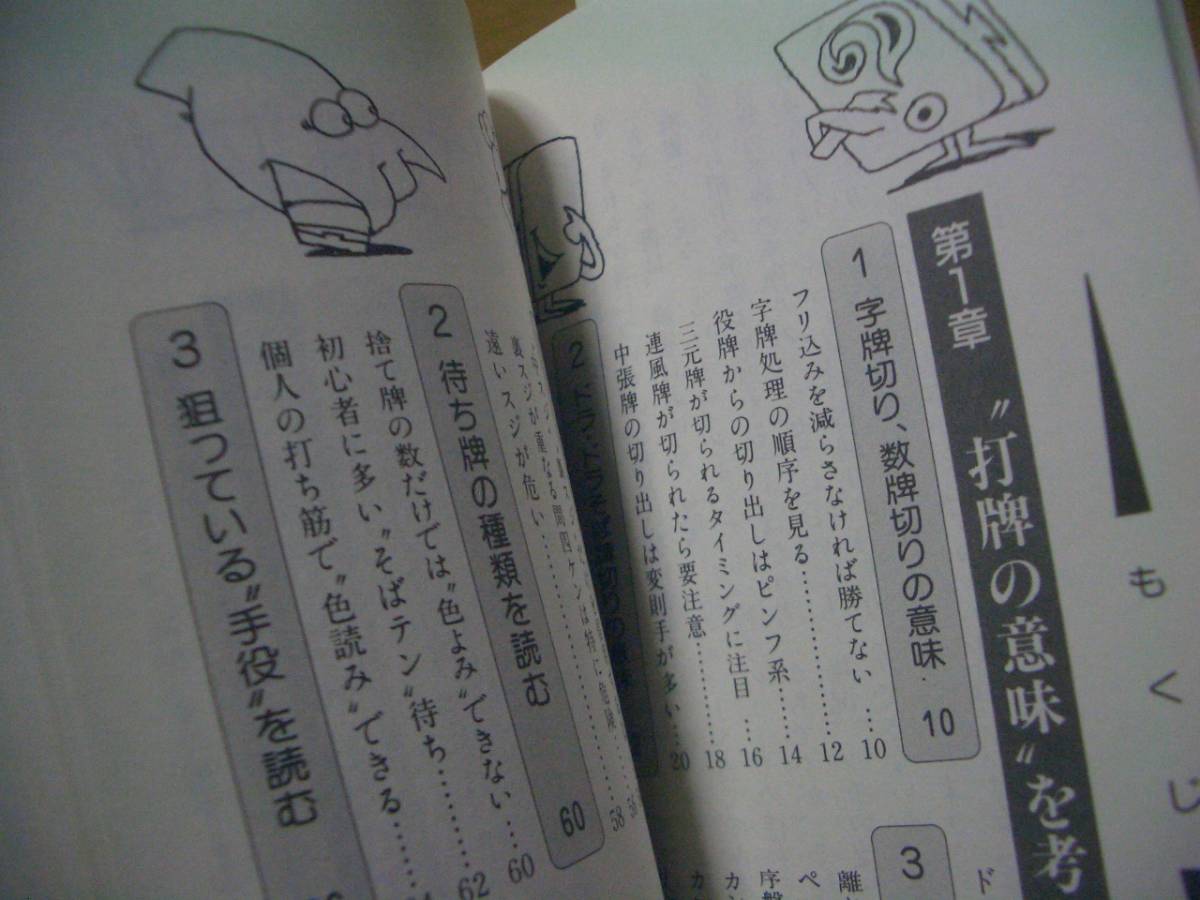 もくじ
第1章 〝打牌の意味〟を考
1 字牌切り、数牌切りの意味 10
フリ込みを減らさなければ勝てない…10
字牌処理の順序を見る………12
役牌からの切り出しはピンフ系……14
三元牌が切られるタイミングに注目…16
連風牌が切られたら要注意………18
中張牌の切り出しは変則手が多い…20
2 ドラ・ドラそば
3
ド
離
ペ
序盤
カ
カ
裏スジが重なる間四ケンは特に危険……56
遠いスジが危い………58
2 待ち牌の種類を読む 60
捨て牌の数だけでは〝色よみ〟できない…60
初心者に多い〝そばテン〟待ち………62
個人の打ち筋で〝色読み〟できる……
3 狙っている〝手役〟を読む